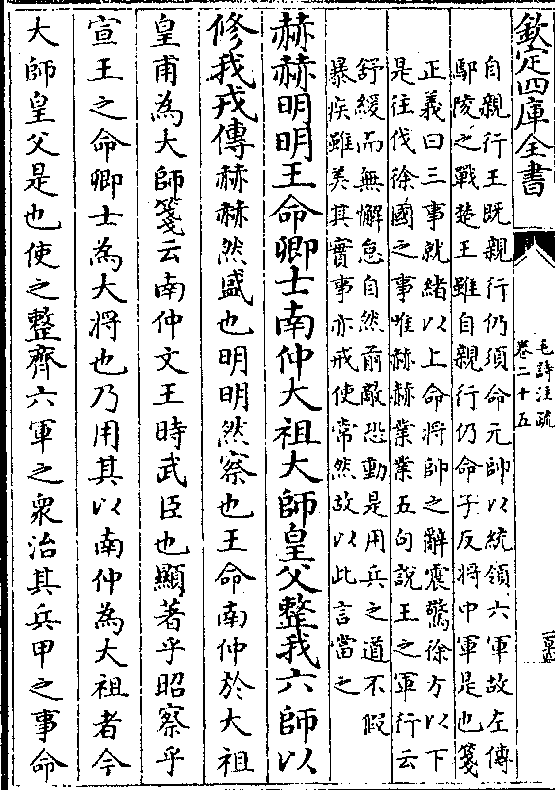 欽定四庫全書
毛詩注疏
卷二十五
自親行王既親行仍須命元帥以統領六軍故左傳
鄢陵之戰楚王雖自親行仍命子反將中軍是也箋
正義曰三事就緒以上命將帥之辭震驚徐方以下
是往伐徐國之事唯赫赫業業五句說王之軍行云
舒緩而無懈怠自然前敵恐動是用兵之道不假
暴疾雖美其實事亦戒使常然故以此言當之
赫赫明明王命卿士南仲大祖大師皇父整我六師以
修我戎傳赫赫然盛也明明然察也王命南仲於大祖
皇甫為大師箋云南仲文王時武臣也顯著乎昭察乎
宣王之命卿士為大將也乃用其以南仲為大祖者今
大師皇父是也使之整齊六軍之衆治其兵甲之事命